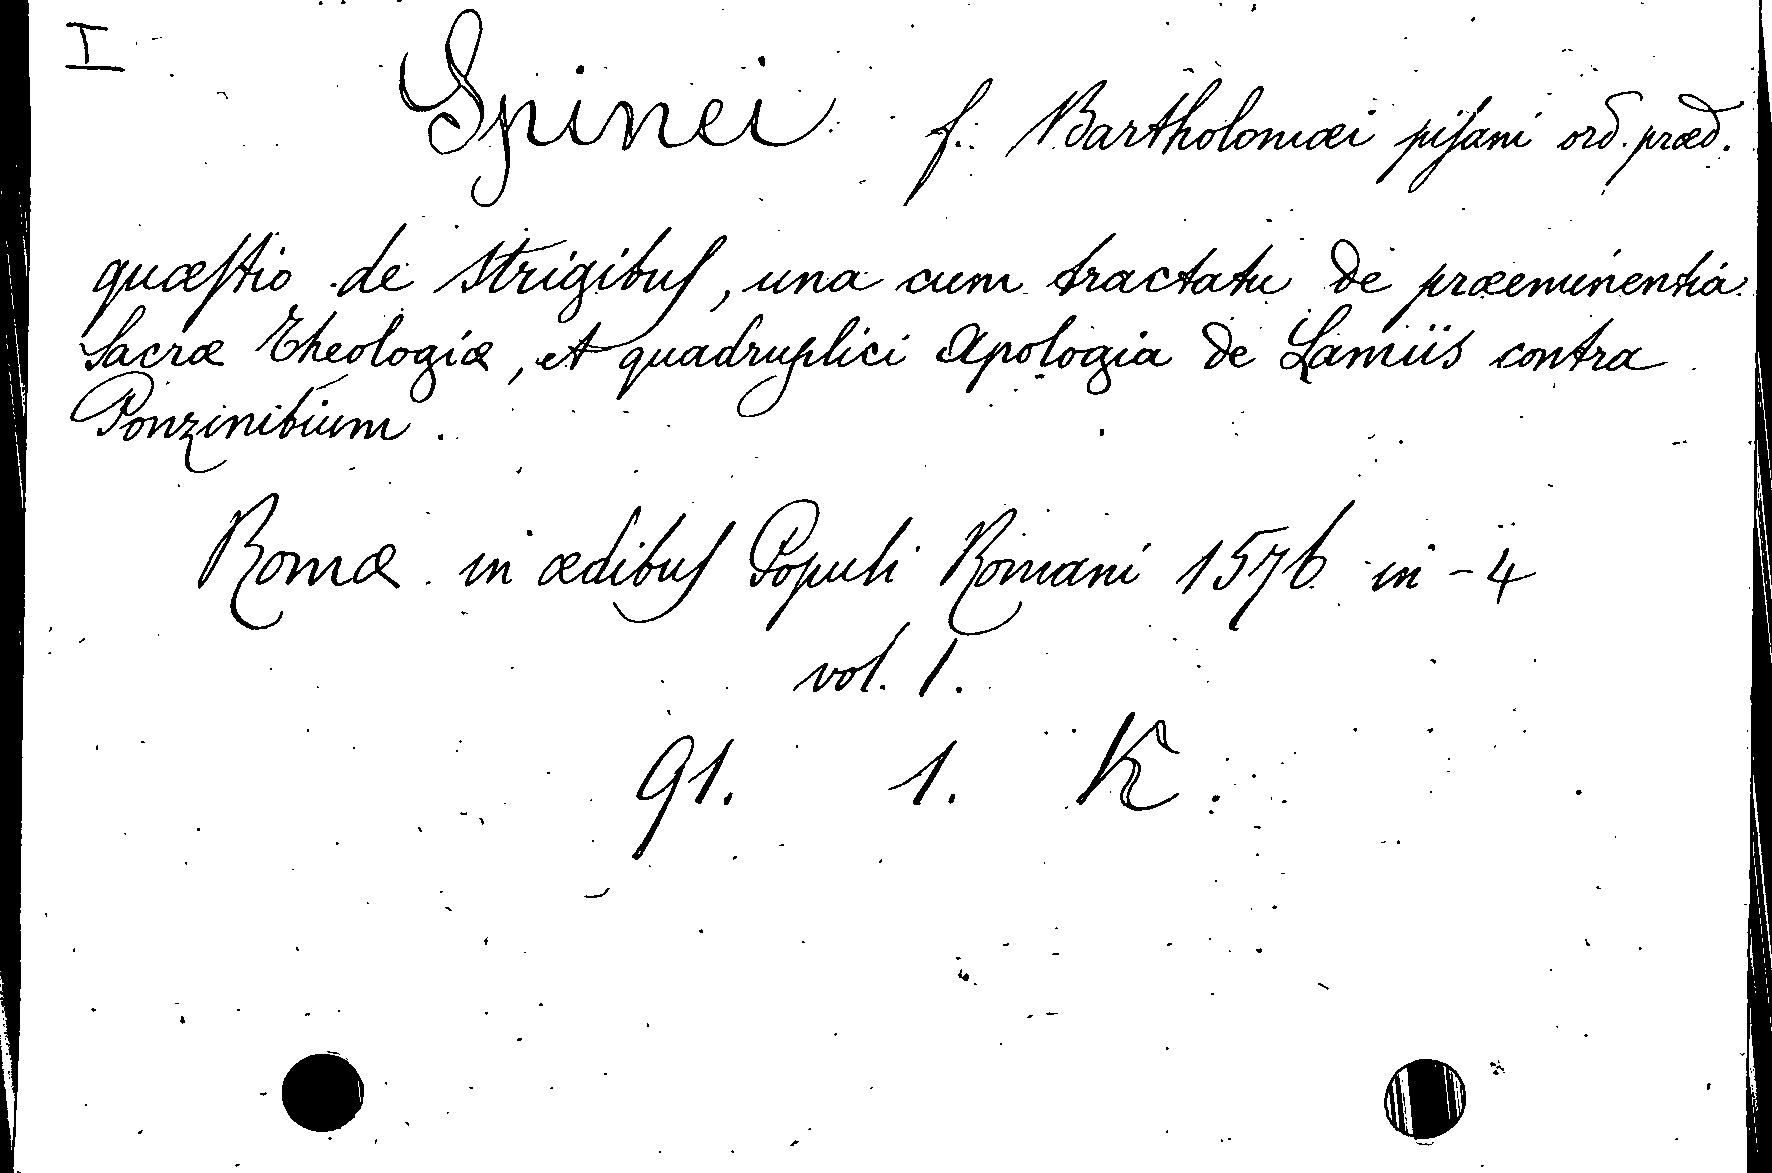 I
Spinei f. Bartholomæi pisani ord. præd.
quæstio de strigibus, una cum tractatu de præeminentia
sacræ theologiæ, et quadruplici apologia de Lamiis contra
Ponzinibium.
Romæ in ædibus Populi Romani 1576 in-4
vol. 1.
91. 1. K.